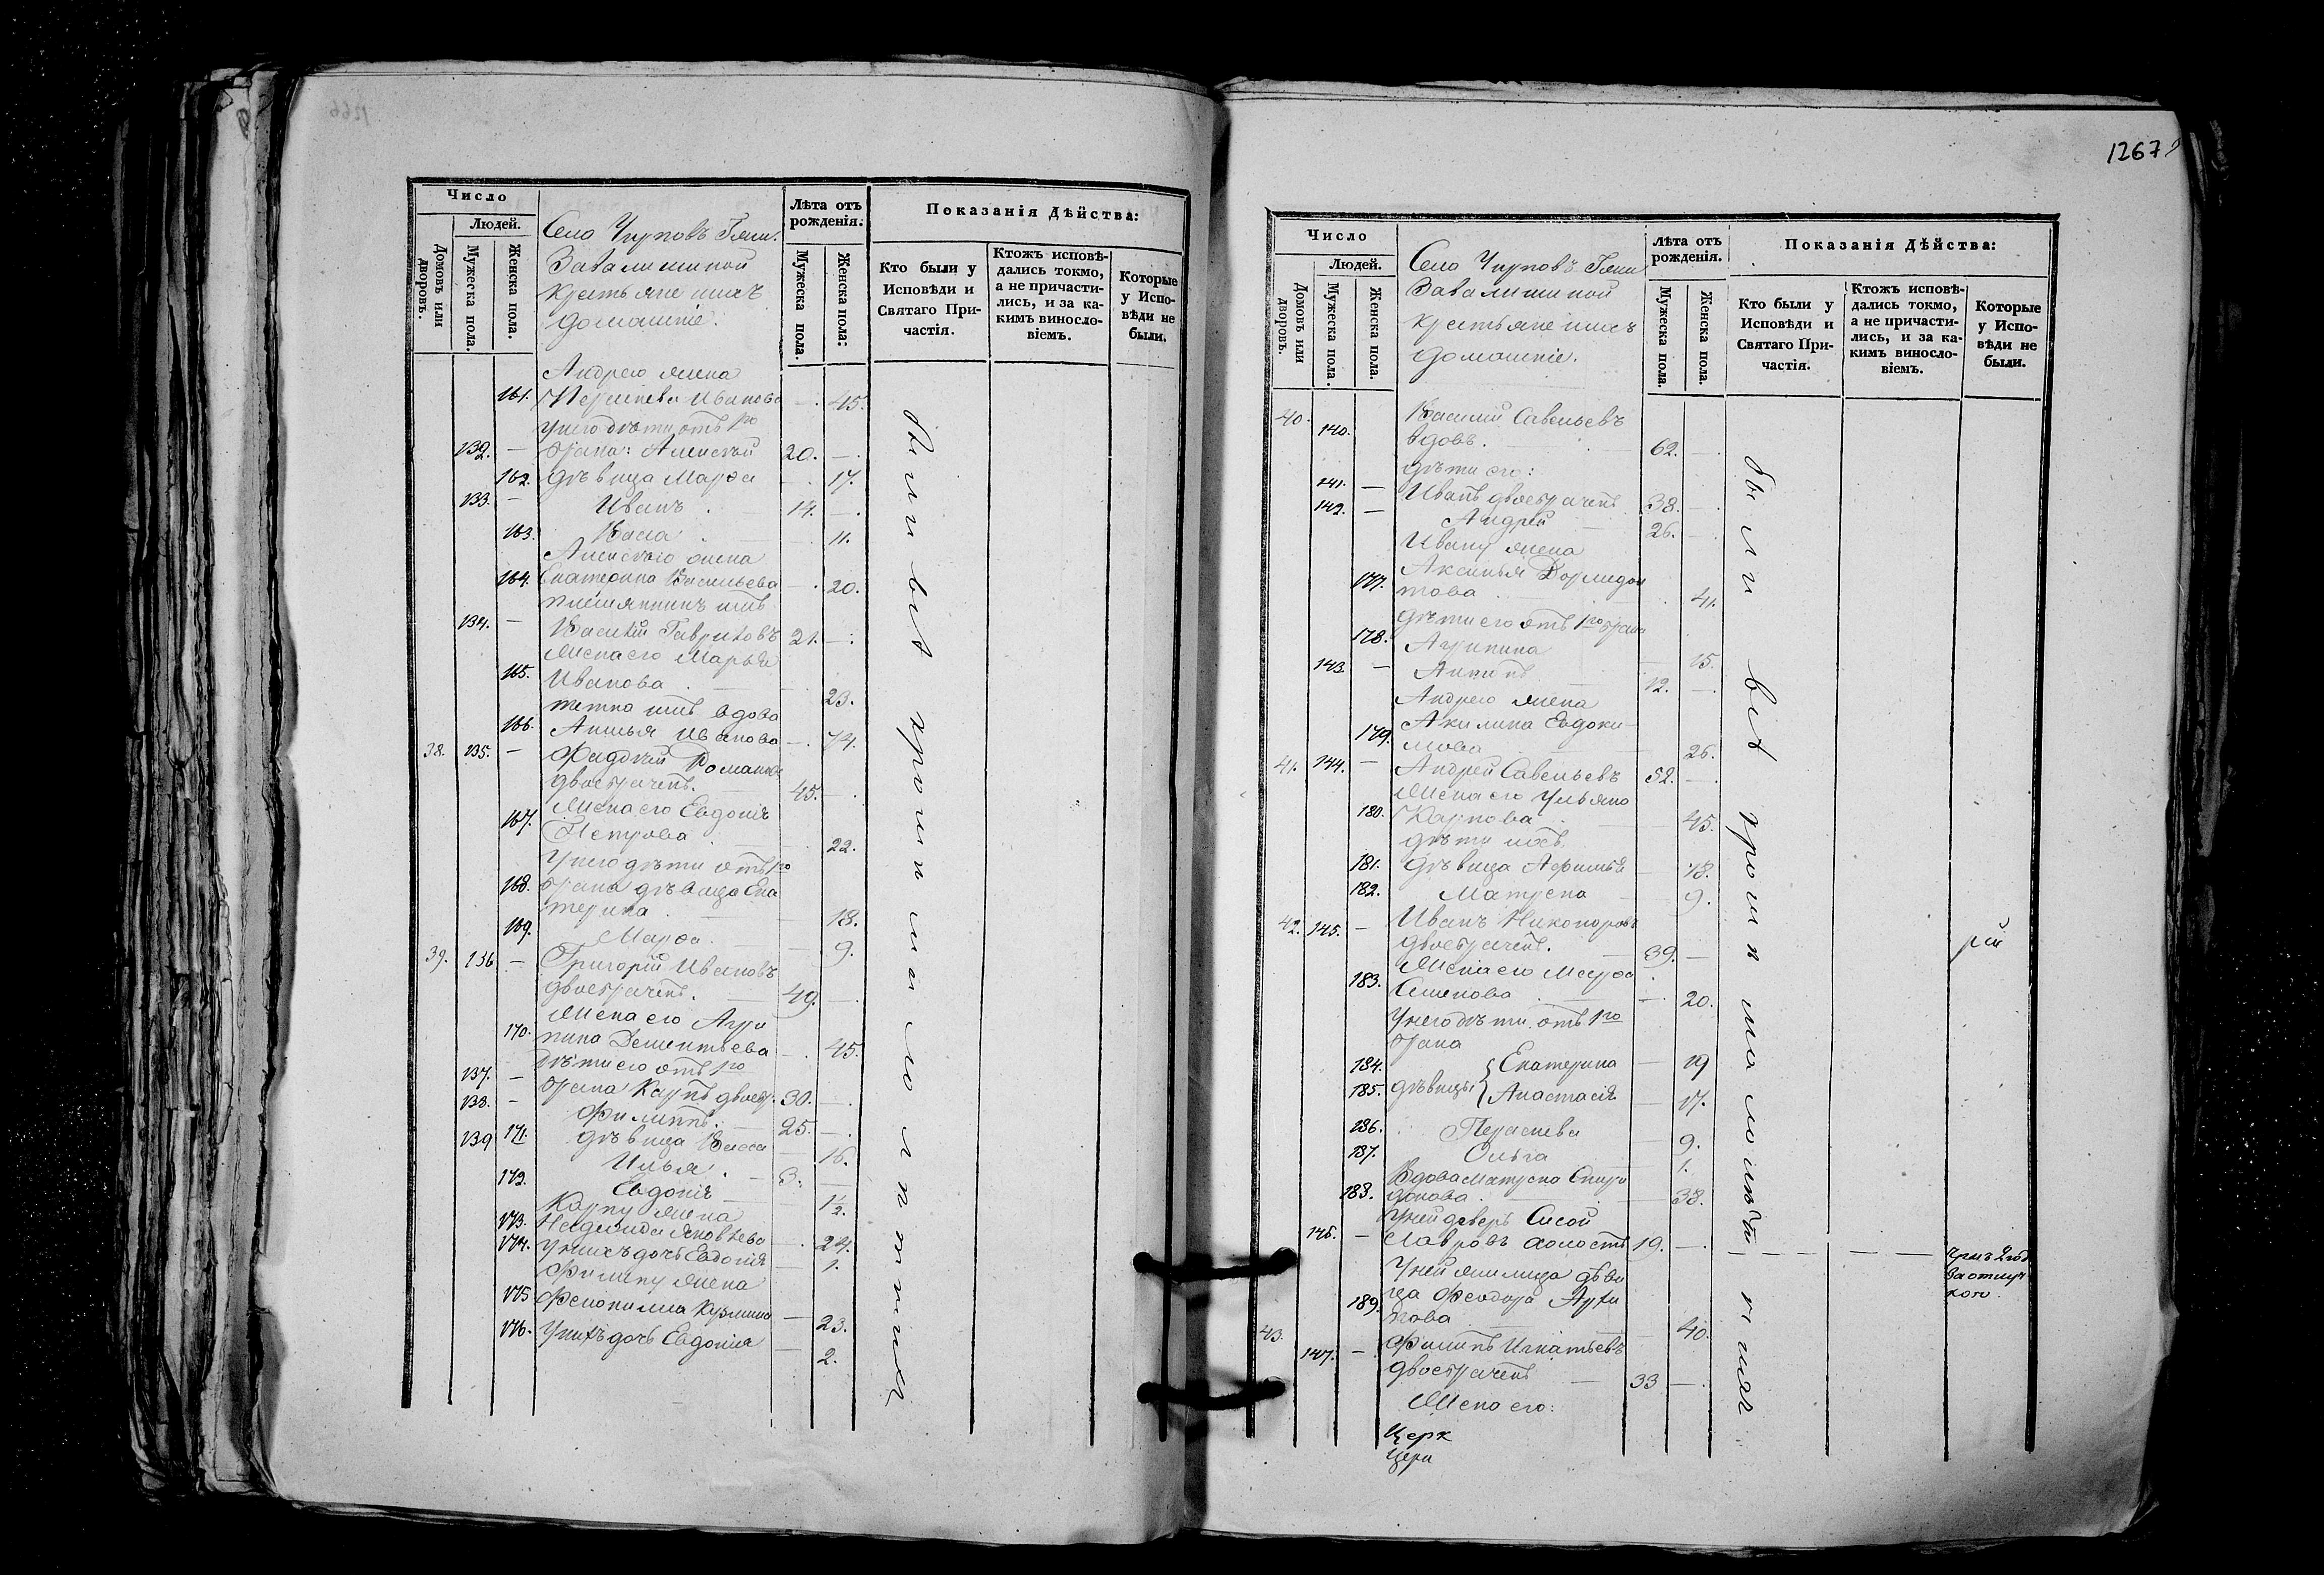 Число
Людей.
Домовъ или дворовъ.
Мужеска пола.
Женска пола.
Село Чирповъ Гжи.
Завалишиной
крестьяне ихъ
домашніе.
Лѣта отъ рожденія.
Мужеска пола.
Женска пола:
Показанія Дѣйства:
Кто были у Исповѣди и Святаго Причастія.
Ктожъ исповѣдались токмо, а не причастились, и за какимъ винословіемъ.
Которые у Исповѣди не были.
Андрею жена
161. Иванова — 45.
у него дѣти отъ 1го
132. — брака: Алексѣй 20. —
162. дѣвица Марѳа — 17.
133. — Иванъ 14. —
163. Васса — 11.
Алексѣю жена
164. Екатерина Васильева — 20.
племянникъ ихъ
134. — Василій Гавриловъ 21. —
Жена его Марья
165. Иванова 23.
тетка ихъ вдова
166. Аксинья Иванова — 74.
38. 135. — Фаддѣй Романовъ
двоебрачный. 45. —
Жена его Евдокія
167. Петрова 22.
У него дѣти отъ 1го
168. брака дѣвица Ека
терина 18.
169. Марѳа. 9.
39. 136 — Григорій Ивановъ
двоебрачный. 49. —
Жена его Агри
170. пина Дементьева — 45.
Дѣти его отъ 1го
137. — брака Карпъ двоебр. 30. —
138. — Филиппъ. 25. —
171. дѣвица Васса 16.
139 Илья 3. —
172. Евдокія 1½.
Карпу жена
173. Надежда Яковлева — 24.
174. у нихъ дочь Евдокія — 1.
Филипу жена
175 Кузмина — 23.
176. У нихъ дочь Евдокія — 2.
были всѣ кроми малолѣтнія
12679
Число
Людей.
Домовъ или дворовъ.
Мужеска пола.
Женска пола.
Село Чирповъ Гжи
Завалишиной
крестьяне ихъ
домашніе.
Лѣта отъ рожденія.
Мужеска пола.
Женска пола.
Показанія Дѣйства:
Кто были у Исповѣди и Святаго Причастія.
Ктожъ исповѣдались токмо, а не причастились, и за какимъ винословіемъ.
Которые у Исповѣди не были.
40. 140. Василій Савельевъ
вдовъ. 62. —
дѣти его:
141. — Иванъ двоебрачный 38. —
142. — Андрей 26. —
Ивану жена
177. Аксинья Дормидон
това 41.
дѣти его отъ 1го брака
178. Агрипина 15.
143 — 12. —
Андрею жена
179. Акилина Евдоки
мова 26.
41. 144. — Андрей Савельевъ 52. —
Жена его Ульяна
180. Карпова 45.
дѣти ихъ
181. дѣвица Афимья 18.
182. Матрена 9.
42. 145. — Иванъ Никоноровъ
двоебрачный. 39. —
Жена его Марѳа
183. Семенова — 20.
У него дѣти отъ 1го
брака
184. Екатерина — 19
185. дѣвицы Анастасія — 17.
186. 9.
187. Ольга 1.
Вдова Матрена Спири
188. донова. 38.
у ней деверь Сисой
146. — Лавровъ холостъ 19. —
чрезъ 2 год
за отлуч
кою.
У ней жилица дѣви
ца Феодора Архи
189. пова 40.
43. 147. — Филипъ Игнатьевъ
двоебрачный 33 —
Жена его:
Церк
Церк
были всѣ кроми малолѣтнія